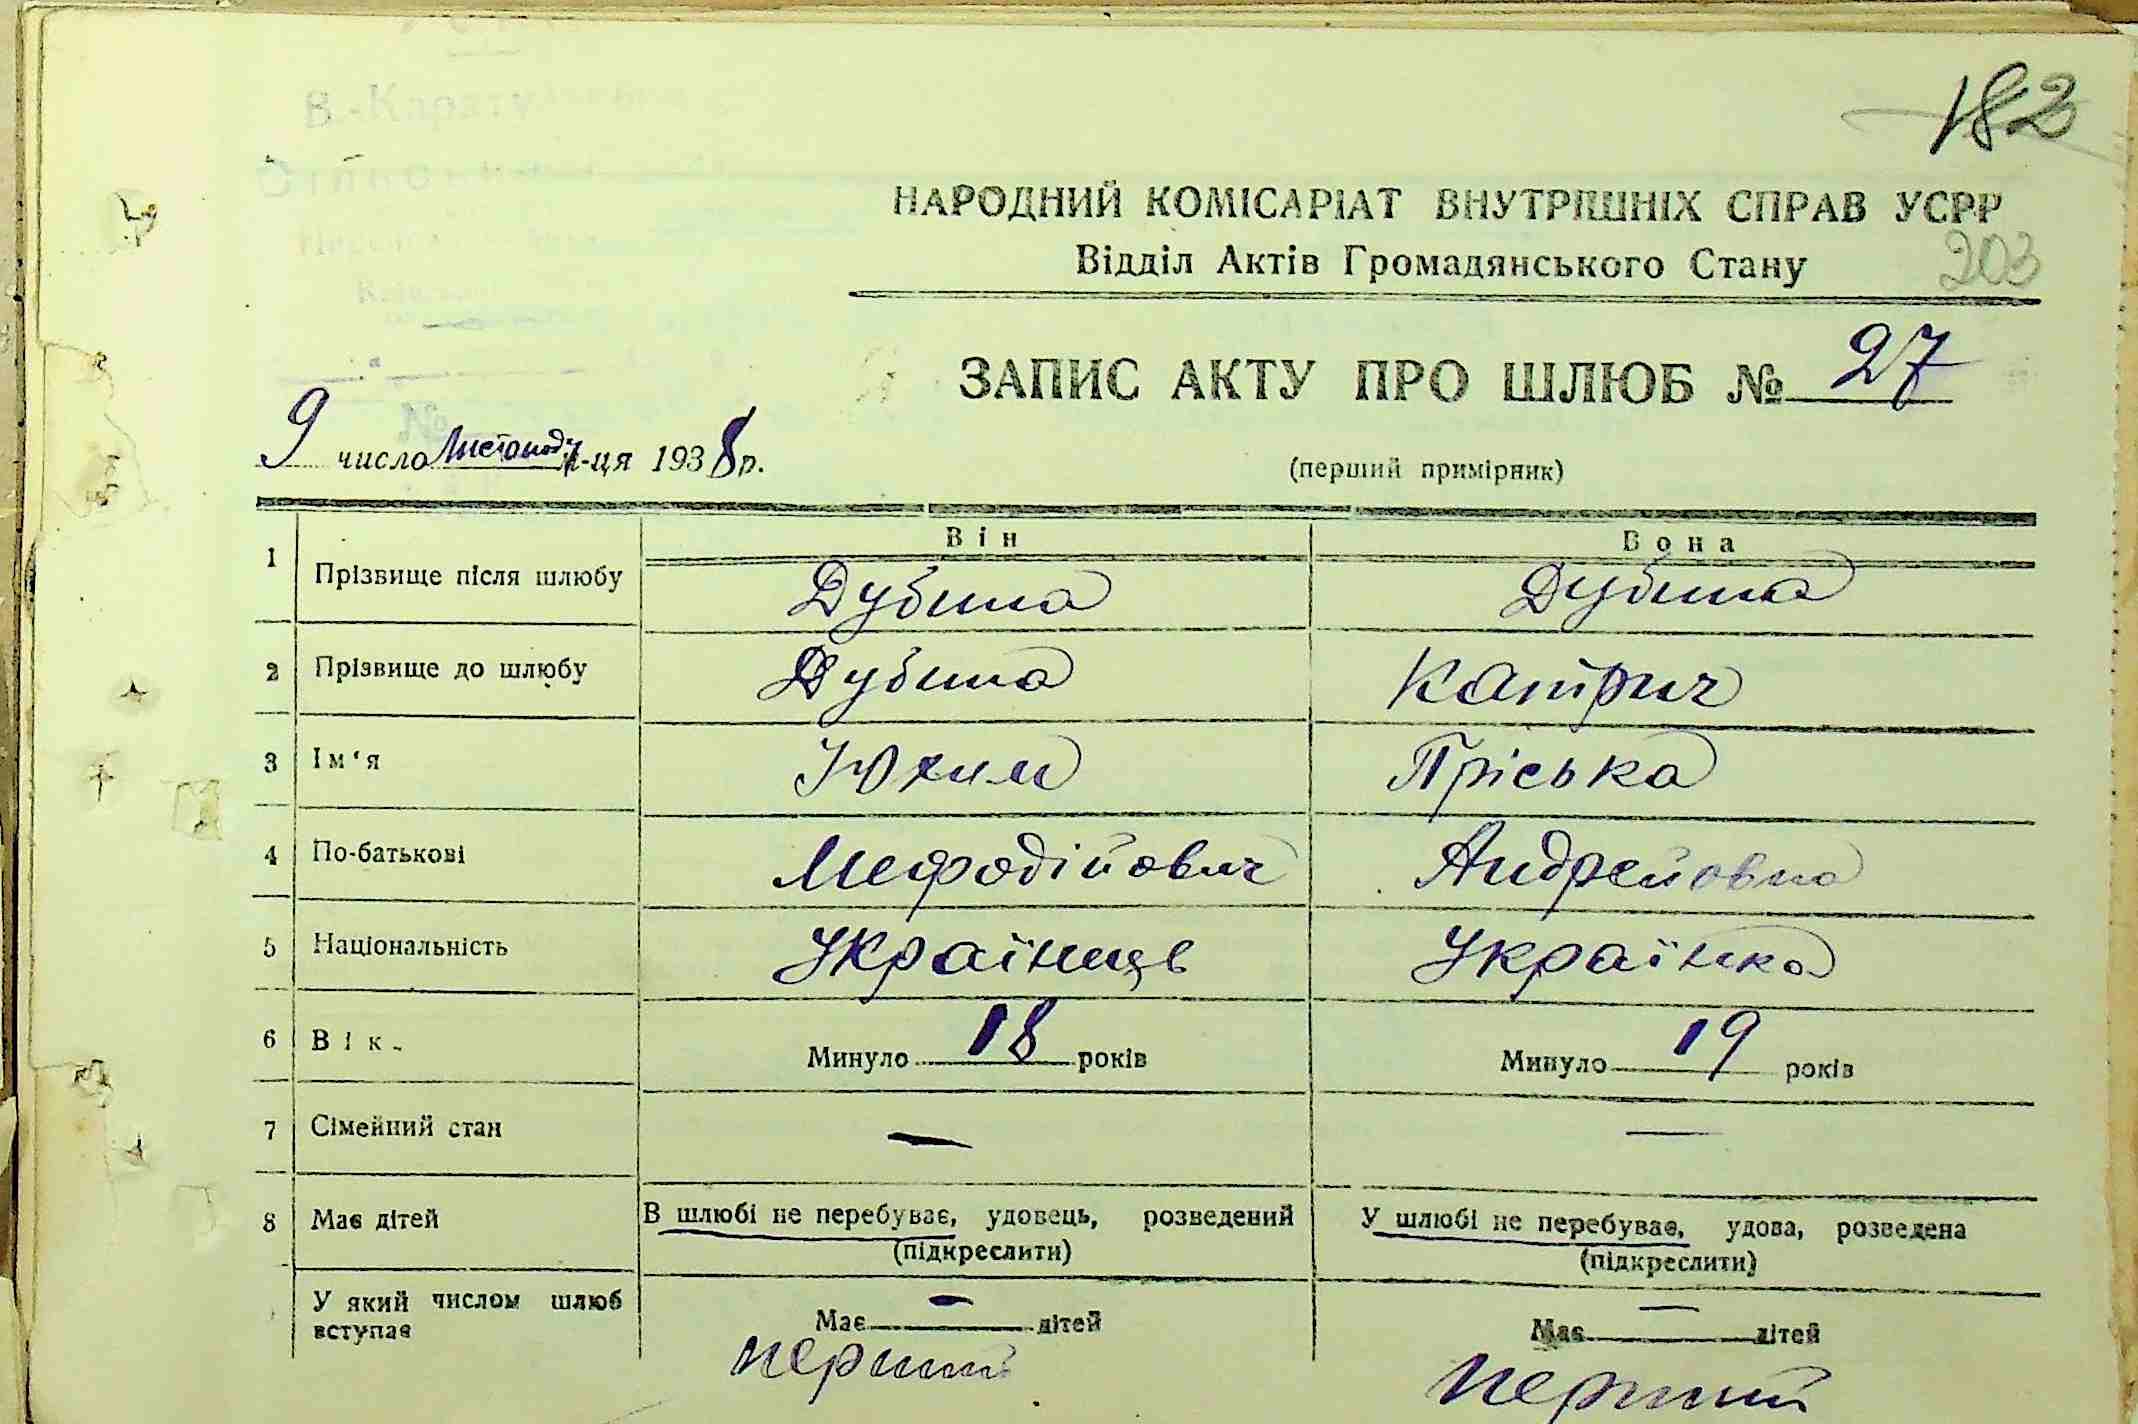 182
В.-Карату
НАРОДНИЙ КОМІСАРІАТ ВНУТРІШНІХ СПРАВ УСРР
Відділ Актів Громадянського Стану
203
ЗАПИС АКТУ ПРО ШЛЮБ № 27
9 число Листопаду м-ця 1938 р.
(перший примірник)
Він Вона
1 Прізвище після шлюбу Дубина Дубина
2 Прізвище до шлюбу Дубина Катрич
3 Ім‘я Юхим Пріська
4 По-батькові Мефодійович Андрейовна
5 Національність Українць Українка
6 Вік. Минуло 18 років Минуло 19 років
7 Сімейний стан — —
8 Має дітей В шлюбі не перебуває, удовець, розведений У шлюбі не перебуває, удова, розведена
(підкреслити) (підкреслити)
У який числом шлюб вступає Має — дітей Має — дітей
перший перший